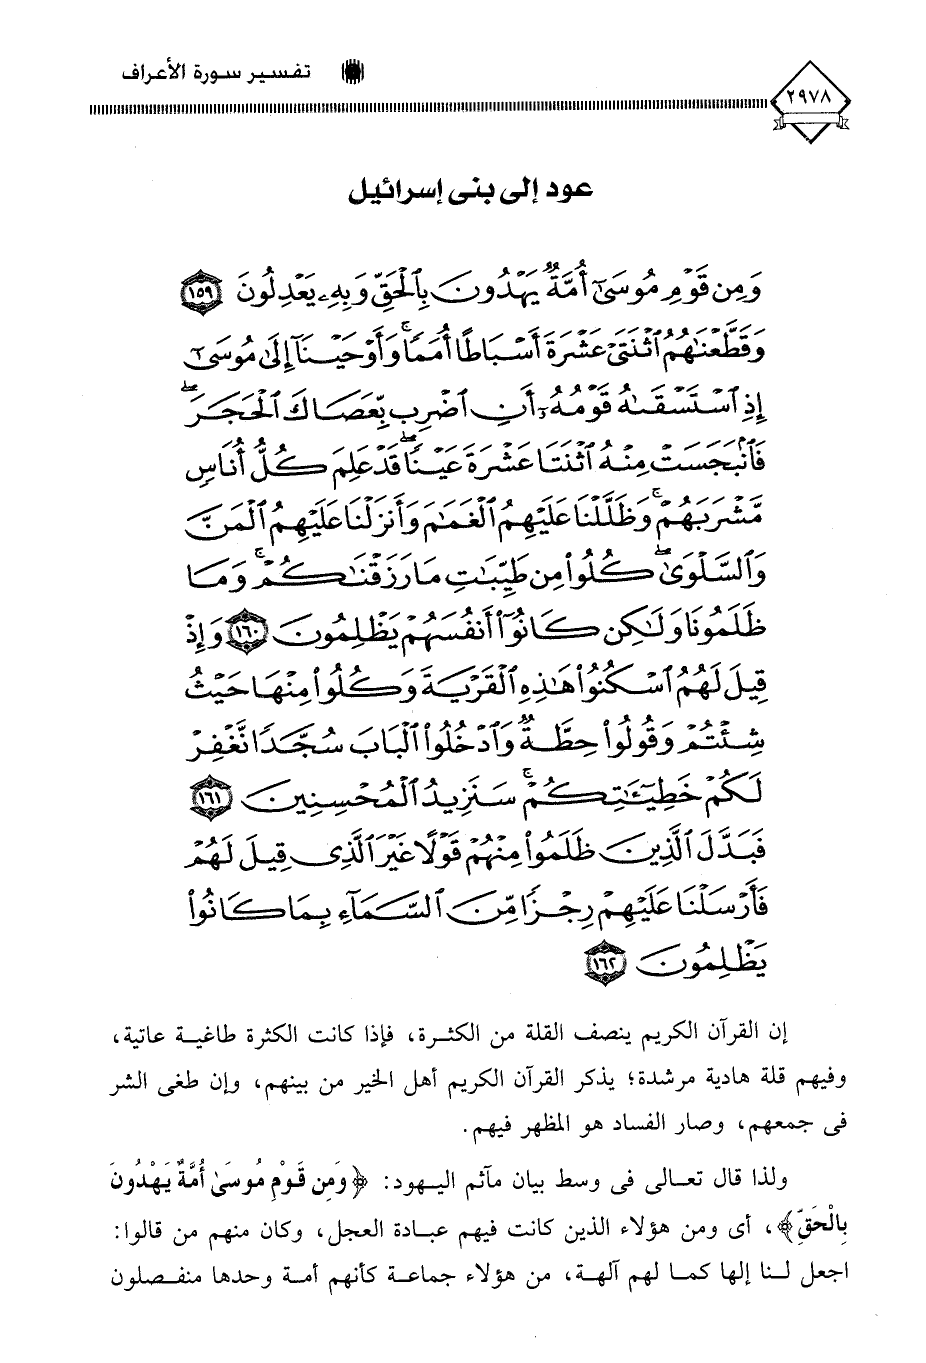 تفسير سورة الأعراف
٢٩٧٨
عود إلى بنى إسرائيل
وَمِن قَوْمِ مُوسَىٰٓ أُمَّةٌ يَهْدُونَ بِٱلْحَقِّ وَبِهِۦ يَعْدِلُونَ ١٥٩
وَقَطَّعْنَٰهُمُ ٱثْنَتَىْ عَشْرَةَ أَسْبَاطًا أُمَمًا ۚ وَأَوْحَيْنَآ إِلَىٰ مُوسَىٰٓ
إِذِ ٱسْتَسْقَىٰهُ قَوْمُهُۥٓ أَنِ ٱضْرِب بِّعَصَاكَ ٱلْحَجَرَ ۖ
فَٱنۢبَجَسَتْ مِنْهُ ٱثْنَتَا عَشْرَةَ عَيْنًا ۖ قَدْ عَلِمَ كُلُّ أُنَاسٍ
مَّشْرَبَهُمْ ۚ وَظَلَّلْنَا عَلَيْهِمُ ٱلْغَمَٰمَ وَأَنزَلْنَا عَلَيْهِمُ ٱلْمَنَّ
وَٱلسَّلْوَىٰ ۖ كُلُوا۟ مِن طَيِّبَٰتِ مَا رَزَقْنَٰكُمْ ۚ وَمَا
ظَلَمُونَا وَلَٰكِن كَانُوٓا۟ أَنفُسَهُمْ يَظْلِمُونَ ١٦٠ وَإِذْ
قِيلَ لَهُمُ ٱسْكُنُوا۟ هَٰذِهِ ٱلْقَرْيَةَ وَكُلُوا۟ مِنْهَا حَيْثُ
شِئْتُمْ وَقُولُوا۟ حِطَّةٌ وَٱدْخُلُوا۟ ٱلْبَابَ سُجَّدًا نَّغْفِرْ
لَكُمْ خَطِيٓـَٰٔتِكُمْ ۚ سَنَزِيدُ ٱلْمُحْسِنِينَ ١٦١
فَبَدَّلَ ٱلَّذِينَ ظَلَمُوا۟ مِنْهُمْ قَوْلًا غَيْرَ ٱلَّذِى قِيلَ لَهُمْ
فَأَرْسَلْنَا عَلَيْهِمْ رِجْزًا مِّنَ ٱلسَّمَآءِ بِمَا كَانُوا۟
يَظْلِمُونَ ١٦٢
إن القرآن الكريم ينصف القلة من الكثرة، فإذا كانت الكثرة طاغية عاتية،
وفيهم قلة هادية مرشدة؛ يذكر القرآن الكريم أهل الخير من بينهم، وإن طغى الشر
فى جمعهم، وصار الفساد هو المظهر فيهم.
ولذا قال تعالى فى وسط بيان مآثم اليهود: ﴿وَمِن قَوْمِ مُوسَىٰ أُمَّةٌ يَهْدُونَ
بِالْحَقِّ﴾، أى ومن هؤلاء الذين كانت فيهم عبادة العجل، وكان منهم من قالوا:
اجعل لنا إلها كما لهم آلهة، من هؤلاء جماعة كأنهم أمة وحدها منفصلون